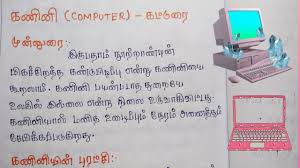 கணினி (COMPUTER) - கட்டுரை
முன்னுரை:
இருபதாம் நூற்றாண்டின்
மிகச்சிறந்த கண்டுபிடிப்பு என்று கணினியை
கூறலாம். கணினி பயன்படாத துறையே
உலகில் இல்லை என்ற நிலை உருவாகிவிட்டது.
கணினியால் மனித உழைப்பும் நேரம் அனைத்தும்
சேமிக்கப்படுகிறது.
கணினியின் புரட்சி: